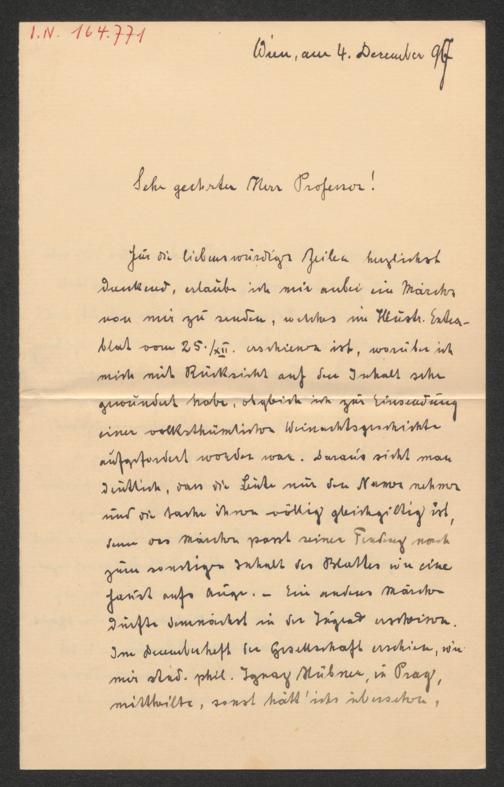 I.N. 164.771
Wien, am 4. December 97
Sehr geehrter Herr Professor!
Für die liebenswürdigen Zeilen herzlichst
dankend, erlaube ich mir anbei ein Märchen
von mir zu senden, welches im Illustr. Extra-
blat vom 25./XII. erschienen ist, worüber ich
mich mit Rücksicht auf den Inhalt sehr
gewundert habe, obgleich ich zur Einsendung
einer volksthümlichen Weinachtsgeschichte
aufgefordert worden war. Daraus sieht man
deutlich, dass die Leute nur den Namen nehmen
und die Sache ihnen völlig gleichgiltig ist,
denn das Märchen passt seiner Tendenz nach
zum sonstigen Inhalt des Blattes wie eine
Faust aufs Auge. – Ein anderes Märchen
dürfte demnächst in der Jugend erscheinen.
Im Decemberheft der Gesellschaft erschien, wie
mir stud. phil. Ignaz Hübner, in Prag,
mittheilte, sonst hätt' ichs übersehen,